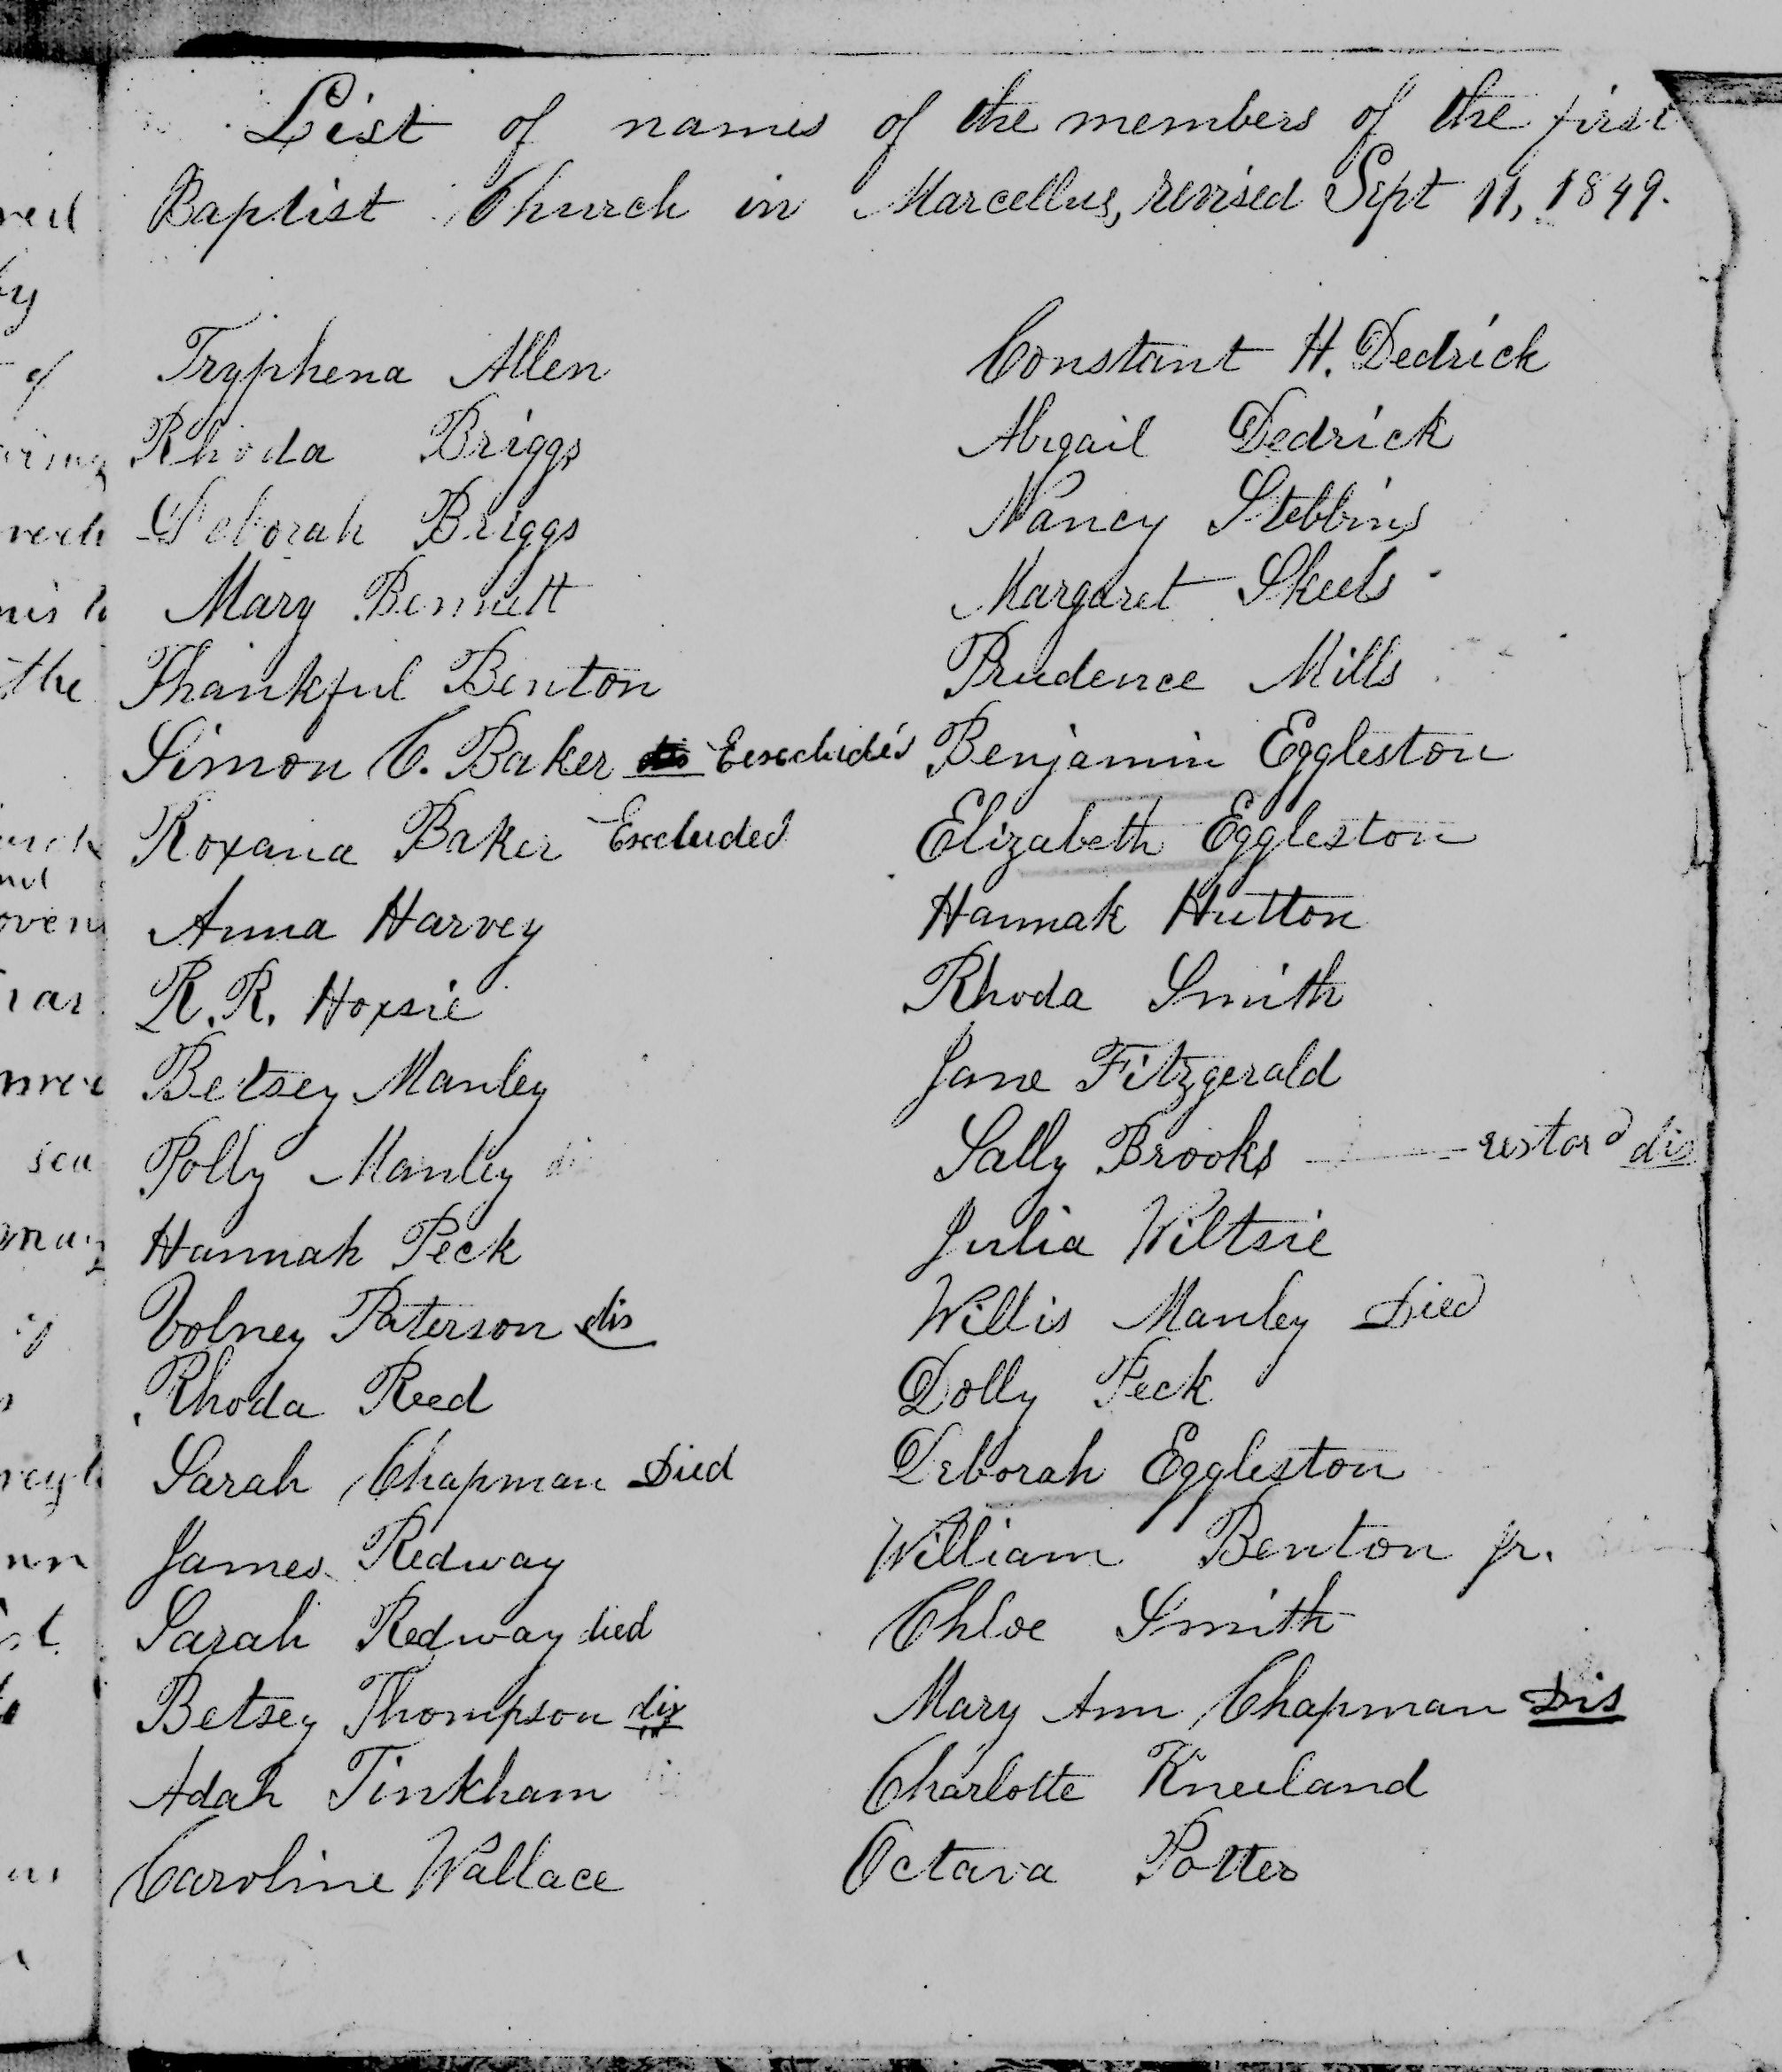 List of names of the members of the first
Baptist Church in Marcellus, revised Sept 11, 1849.
Tryphena Allen
Rhoda Briggs
Deborah Briggs
Mary Bennett
Thankful Benton
Simon C. Baker Exscluded
Roxana Baker Excluded
Anna Harvey
R. R. Hoxsie
Betsey Manley
Polly Manley
Hannah Peck
Volney Paterson dis
Rhoda Reed
Sarah Chapman Died
James Redway
Sarah Redway died
Betsey Thompson dis
Adah Tinkham
Caroline Wallace
Constant H. Dedrick
Abigail Dedrick
Nancy Stebbins
Margaret Skeels
Prudence Mills
Benjamin Eggleston
Elizabeth Eggleston
Hannah Hutton
Rhoda Smith
Jane Fitzgerald
Sally Brooks restord dis
Julia Wiltsie
Willis Manley Died
Dolly Peck
Deborah Eggleston
William Benton jr.
Chloe Smith
Mary Ann Chapman Dis
Charlotte Kneeland
Octava Potter